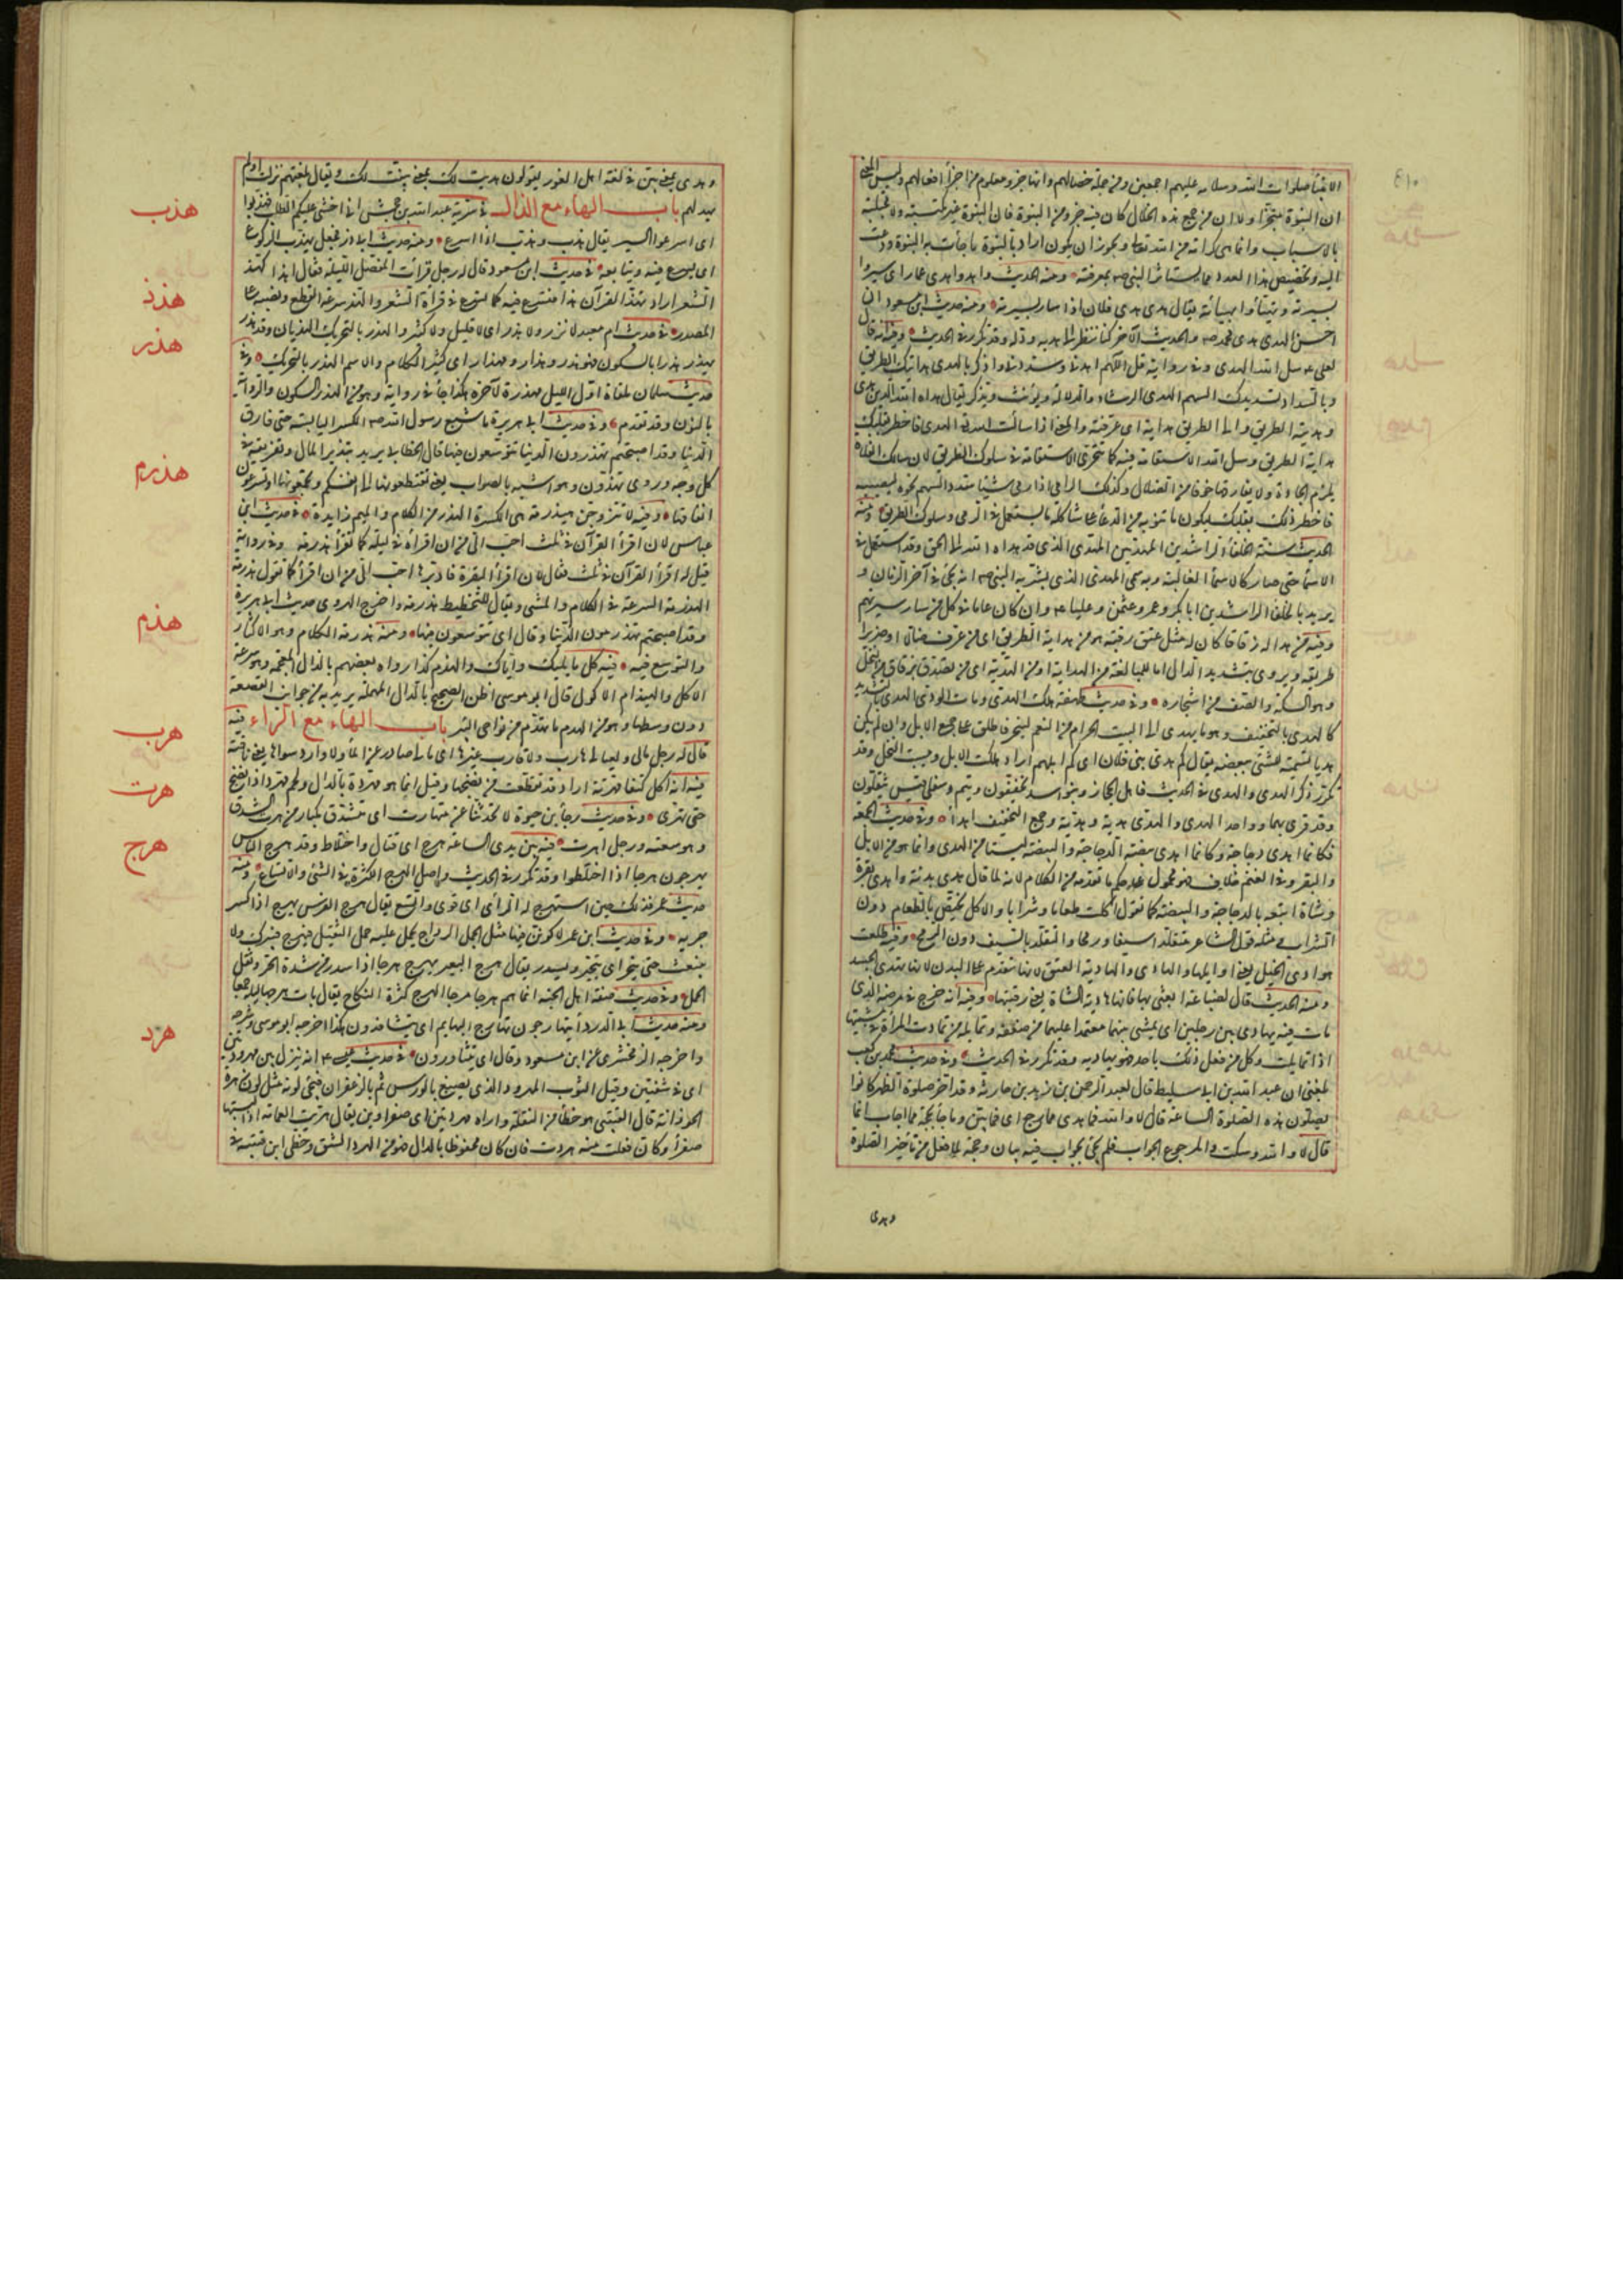 الانبيآء صلوات الله وسلامه عليهم اجمعين ومن جملة خصالهم وانها جزء معلوم من اجزآء افعالهم وليس المعنى
ان النبوة تتجزأ ولا ان من جمع هذه الخلال كان فيه جزء من النبوة فان النبوة غير مكتسبة ولا مجتلبة
بالاسباب وانما هى كرامة من الله تعالى ويجوز ان يكون اراد بالنبوة ما جأت به النبوة ودعت
اليه وتخصيص هذا العدد مما يستأثر النبى صم بمعرفته ومنه الحديث واهدوا هدى عمار اى سيروا
بسيرته وتهيأوا بهيأته يقال هدى هدى فلان اذا سار بسيرته ومنه حديث ابن مسعود ان
احسن الهدى هدى محمد صم والحديث الآخر كنا ننظر الى هديه ودله وقد تكرر فى الحديث وفيه انه قال
لعلى عم سل الله الهدى وفى رواية قل اللهم اهدنى وسددنى واذكر بالهدى هدايتك الطريق
وبالسداد تسديدك السهم الهدى الرشاد والدلالة ويؤنث ويذكر يقال هداه الله للدين هدى
وهديته الطريق والى الطريق هداية اى عرفته والمعنى اذا سألت الله الهدى فاخطر بقلبك
هداية الطريق وسل الله الاستقامة فيه كما تتحرى الاستقامة فى سلوك الطريق لان سالك الفلاة
يلزم الجادة ولا يفارقها خوفا من الضلال وكذلك الرامى اذا رمى شيئا سدد السهم نحوه ليصيبه
فاخطر ذلك بقلبك ليكون ما تنويه من الدعآء على شاكلة ما يستعمل فى الرمى وسلوك الطريق ومنه
الحديث سنة الخلفآء الراشدين المهديين المهدى الذى قد هداه الله الى الحق وقد استعمل فى
الاسمآء حتى صار كالاسمآء الغالبة وبه سمى المهدى الذى بشر به النبى صم انه يجئ فى آخر الزمان و
يريد بالخلفآء الراشدين ابا بكر وعمر وعثمن وعليا عم وان كان عاما فى كل من سار سيرتهم
وفيه من هدى زقاقا كان له مثل عتق رقبة هو من هداية الطريق اى من عرف ضالا او ضريرا
طريقه ويروى بتشديد الدال اما للمبالغة من الهداية او من الهدية اى من تصدق بزقاق من النخل
وهو السكة والصف من اشجاره وفى حديث طهفة هلك الهدى ومات الودى الهدى بالتشديد
كالهدى بالتخفيف وهو ما يهدى الى البيت الحرام من النعم لينحر فاطلق على جميع الابل وان لم يكن
هديا تسمية للشئ ببعضه يقال كم هدى بنى فلان اى كم ابلهم اراد هلكت الابل ويبست النخل وقد
تكرر ذكر الهدى والهدى فى الحديث فاهل الحجاز وبنو اسد يخففون وتيم وسفلى قيس يثقلون
وقد قرى بهما وواحد الهدى والهدى هدية وهدية وجمع المخفف اهدآء وفى حديث الجمعة
فكانما اهدى دجاجة وكانما اهدى بيضة الدجاجة والبيضة ليستا من الهدى وانما هو من الابل
والبقر وفى الغنم خلاف فهو محمول على حكم ما تقدمه من الكلام لانه لما قال اهدى بدنة واهدى بقرة
وشاة اتبعه بالدجاجة والبيضة كما تقول اكلت طعاما وشرابا والاكل يختص بالطعام دون
الشراب ومثله قول الشاعر متقلدا سيفا ورمحا والتقلد بالسيف دون الرمح وفيه طلعت
هوادى الخيل يعنى اوايلها والهادى والهادية العنق لانها تتقدم على البدن ولانها تهدى الجسد
ومنه الحديث قال لضباعة ابعثى بها فانها هادية الشاة يعنى رقبتها وفيه انه خرج فى مرضه الذى
مات فيه يهادى بين رجلين اى يمشى بينهما معتمدا عليهما من ضعفه وتمايله من تهادت المرأة فى مشيتها
اذا تمايلت وكل من فعل ذلك باحد فهو يهاديه وقد تكرر فى الحديث وفى حديث محمد بن كعب
بلغنى ان عبد الله بن ابى سليط قال لعبد الرحمن بن زيد بن حارثة وقد اخر صلوة الظهر أكانوا
يصلون هذه الصلوة الساعة قال لا والله فما هدى مما رجع اى فما بين وما جآء بحجة مما اجاب انما
قال لا والله وسكت والمرجوع الجواب فلم يجئ بجواب فيه بيان وحجة لما فعل من تأخير الصلوة
وهدى
وهدى بمعنى بين فى لغة اهل الغور يقولون هديت لك بمعنى بينت لك ويقال بلغتهم نزلت اولم
يهد لهم باب الهاء مع الذال فى سرية عبد الله بن جحش انى اخشى عليكم الطلب فهذبوا
اى اسرعوا السير يقال هذب وهذب اذا اسرع ومنه حديث ابى ذر فجعل يهذب الركوع
اى يسرع فيه ويتابعه فى حديث ابن مسعود قال له رجل قرأت المفصل الليلة فقال اهذا كهذ
الشعر اراد تهذ القرآن هذا فتسرع فيه كما تسرع فى قرآة الشعر والهذ سرعة القطع ونصبه على
المصدر فى حديث ام معبد لا نزر ولا هذر اى لا قليل ولا كثير والهذر بالتحريك الهذيان وقد هذر
يهذر هذرا بالسكون فهو هذر وهذار ومهذار اى كثير الكلام والاسم الهذر بالتحريك وفى
حديث سلمان ملغاة اول الليل مهذرة لآخره هكذا جآء فى رواية وهو من الهذر السكون والرواية
بالنون وقد تقدم وفى حديث ابى هريرة ما شبع رسول الله صم من الكسر اليابسة حتى فارق
الدنيا وقد اصبحتم تهذرون الدنيا تتوسعون فيها قال الخطابى يريد تبذير المال وتفريقه فى
كل وجه وروى تهذون وهو اشبه بالصواب يعنى تقتطعونها الى انفسكم وتجمعونها او تسرعون
انفاقها وفيه لا تتزوجن هيذرة هى الكثيرة الهذر من الكلام والميم زايدة فى حديث ابن
عباس لان اقرأ القرآن فى ثلث احب الى من ان اقرأه فى ليلة كما تقرأ هذرمة وفى رواية
قيل له اقرأ القرآن فى ثلث فقال لان اقرأ البقرة فادبرها احب الى من ان اقرأ كما تقول هذرمة
الهذرمة السرعة فى الكلام والمشى ويقال للتخليط هذرمة واخرج الهروى حديث ابى هريرة
وقد اصبحتم تهذرمون الدنيا وقال اى تتوسعون فيها ومنه هذرمة الكلام وهو الاكثار
والتوسع فيه فيه كل مما يليك واياك والهذم كذا رواه بعضهم بالذال المعجمة وهو سرعة
الاكل والهيذام الاكول قال ابو موسى اظن الصحيح بالدال المهملة يريد به من جوانب القصعة
دون وسطها وهو من الهدم ما تهدم من نواحى البئر باب الهاء مع الراء فيه
قال له رجل مالى ولعيالى هارب ولا قارب غيرها اى مالى صادر عن المآء ولا وارد سواها يعنى ناقته
فيه انه اكل كتفا مهرتة اراد قد تقطعت من نضجها وقيل انما هو مهردة بالدال ولحم مهرد اذا نضج
حتى تهرى وفى حديث رجآء بن حيوة لا تحدثنا عن متهارت اى متشدق مكثار من هرت الشدق
وهو سعته ورجل اهرت فيه بين يدى الساعة هرج اى قتال واختلاط وقد هرج الناس
يهرجون هرجا اذا اختلطوا وقد تكرر فى الحديث واصل الهرج الكثرة فى الشئ والاتساع ومنه
حديث عمر فذلك حين استهرج له الرأى اى قوى واتسع يقال هرج الفرس يهرج اذا كثر
جريه وفى حديث ابن عمر لاكونن فيها مثل الجمل الرداح يحمل عليه الحمل الثقيل فيهرج فيبرك ولا
ينبعث حتى ينحر اى يتحير ويسدر يقال هرج البعير يهرج هرجا اذا سدر من شدة الحر وثقل
الحمل وفى حديث صفة اهل الجنة انما هم هرجا مرجا الهرج كثرة النكاح يقال بات يهرجها ليلة جمعا
ومنه حديث ابى الدردآء يتهارجون تهارج البهايم اى يتسافدون هكذا اخرجه ابو موسى وشرحه
واخرجه الزمخشرى عن ابن مسعود وقال اى يتثاورون فى حديث عيسى عم انه ينزل بين مهرودتين
اى فى شقتين وقيل الثوب المهرود الذى يصبغ بالورس ثم بالزعفران فيجئ لونه مثل لون زهرة
الحوذانة قال القتيبى هو خطأ من النقلة واراه مهروتين اى صفراوين يقال هريت العمامة اذا لبستها
صفرآء وكان فعلت منه هروت فان كان محفوظا بالدال فهو من الهرد الشق وخطى ابن قتيبة فى
هذب
هذذ
هذر
هذرم
هذم
هرب
هرت
هرج
هرد